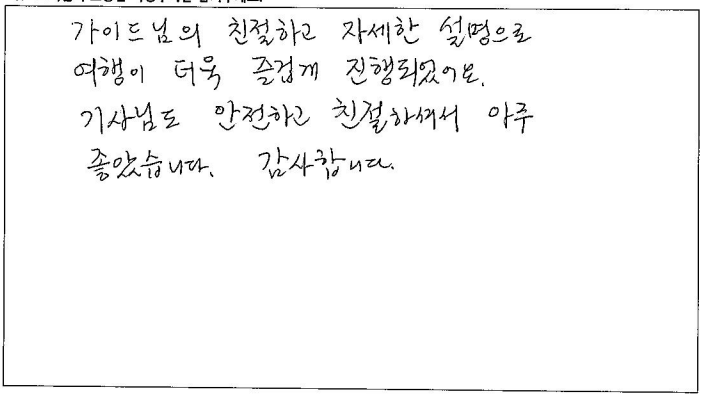 가이드님의 친절하고 자세한 설명으로
여행이 더욱 즐겁게 진행되었어요.
기사님도 안전하고 친절하셔서 아주
좋았습니다. 감사합니다.